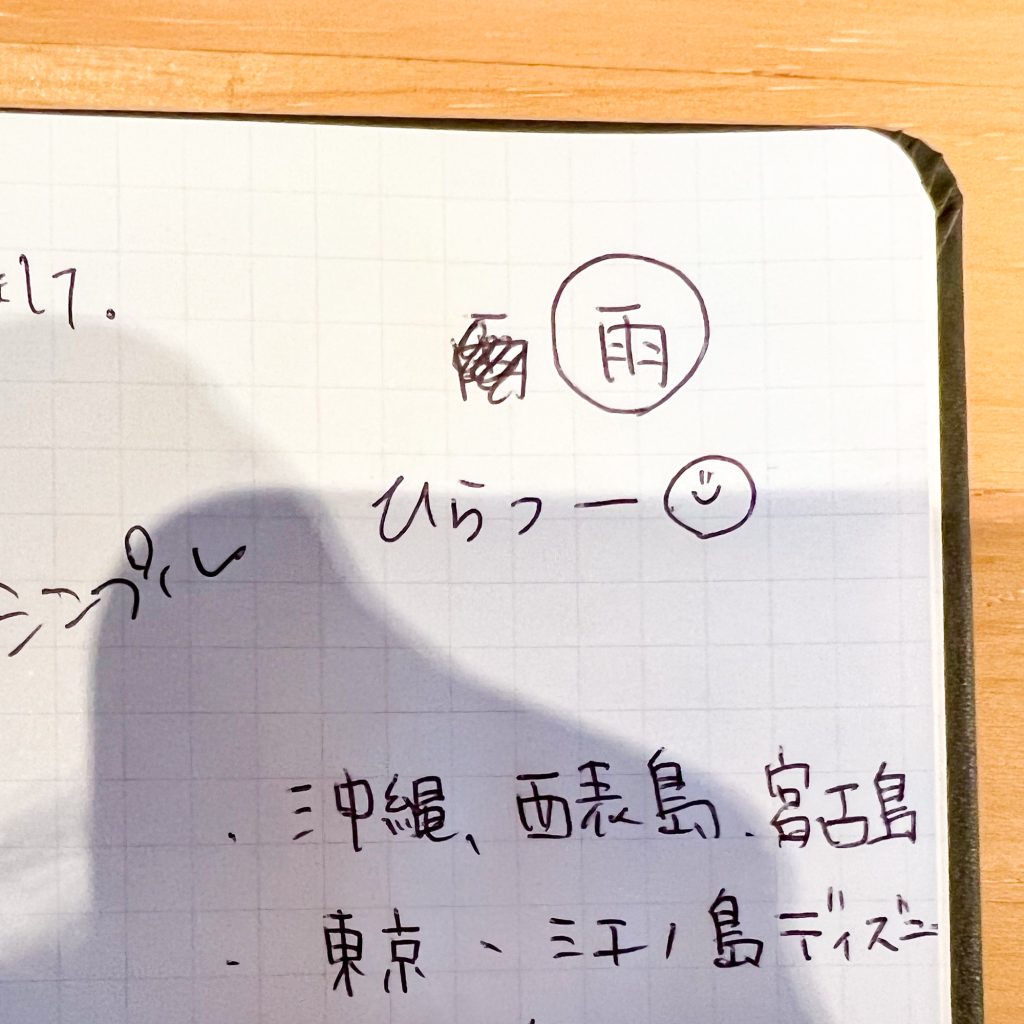 して.
雨
ひらつー
ンプル
・沖縄、西表島、宮古島
・東京、江ノ島ディズニ